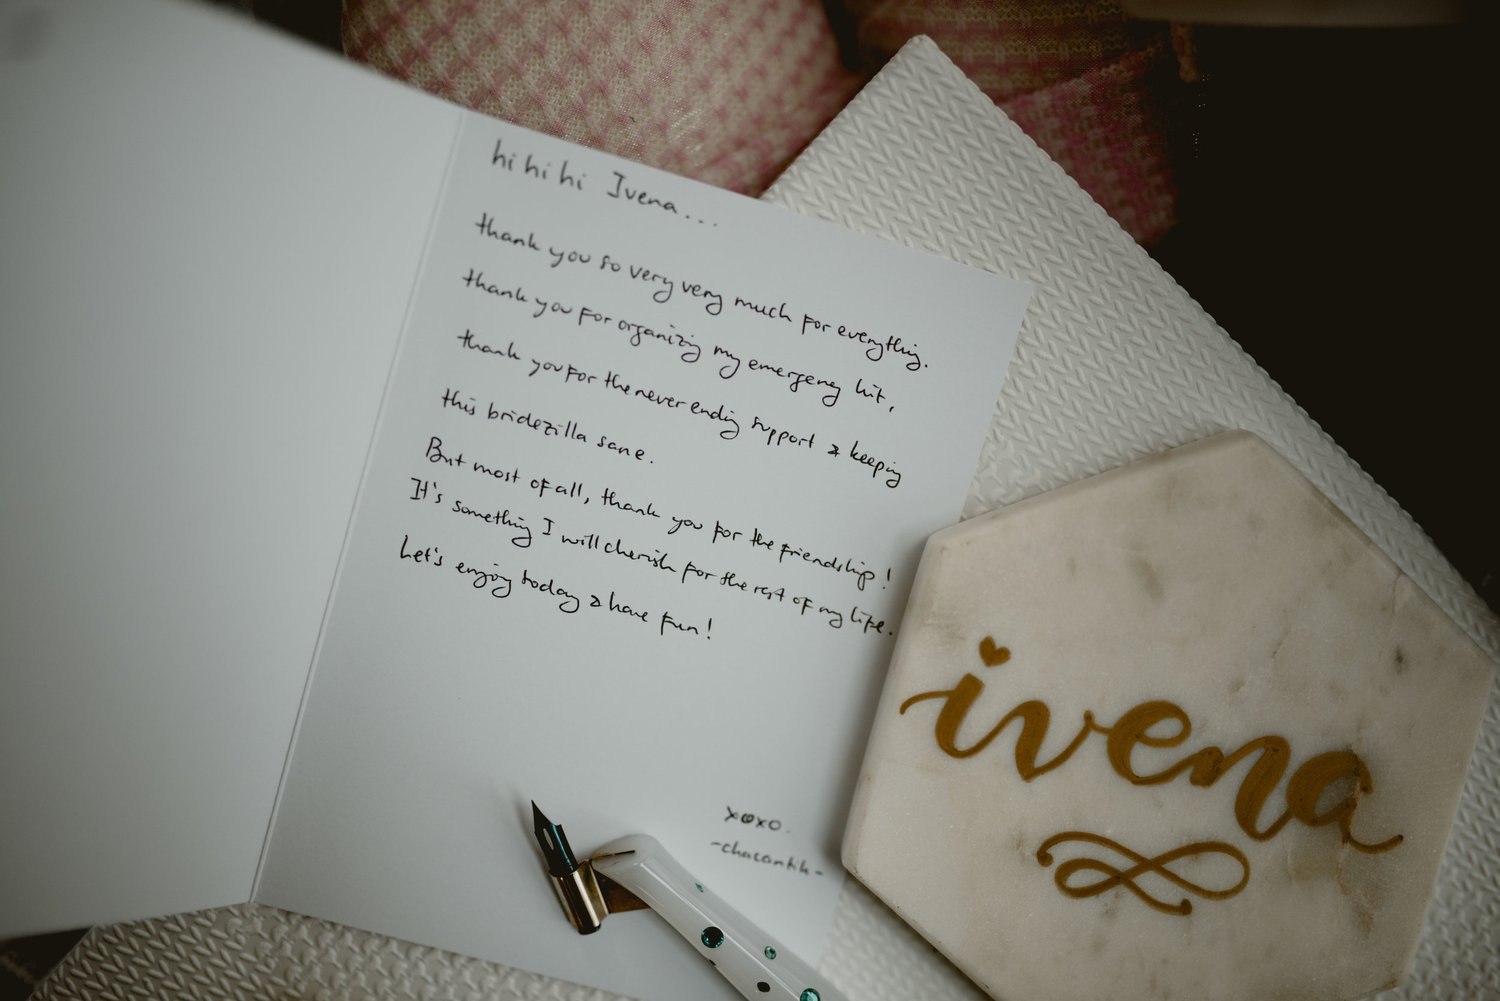 hi hi hi Ivena...
thank you so very very much for everything.
thank you for organizing my emergency kit,
thank you for the never ending support & keeping
this bridezilla sane.
But most of all, thank you for the friendship!
It's something I will cherish for the rest of my life.
Let's enjoy today & have fun!
xoxo.
-chacantik-
ivena